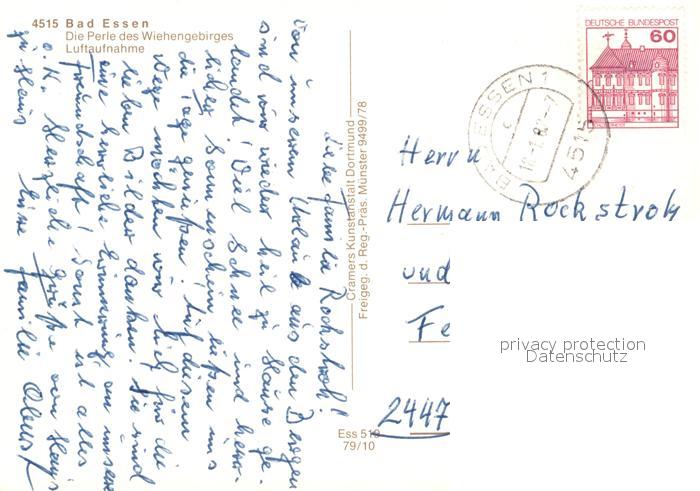 4515 Bad Essen
Die Perle des Wiehengebirges
Luftaufnahme
Liebe Familie Rockstroh!
Von unserem Urlaub aus den Bergen
sind wir wieder heil zu Hause ge-
landet! Viel Schnee und herr-
licher Sonnenschein ließen uns
die Tage genießen. Auf diesem
Wege möchten wir euch für die
lieben Bilder danken. Sie sind
eine herrliche Erinnerung an unsere
Freundschaft! Sonst ist alles
o.K. Herzliche Grüße von Haus
zu Haus
Eure Familie
Cramers Kunstanstalt Dortmund
Freigeg. d. Reg.-Präs. Münster 9499/78
Ess 519
79/10
DEUTSCHE BUNDESPOST
60
BAD ESSEN 1
4515
Herrn
Hermann Rockstroh
und
Fe
2447
privacy protection
Datenschutz